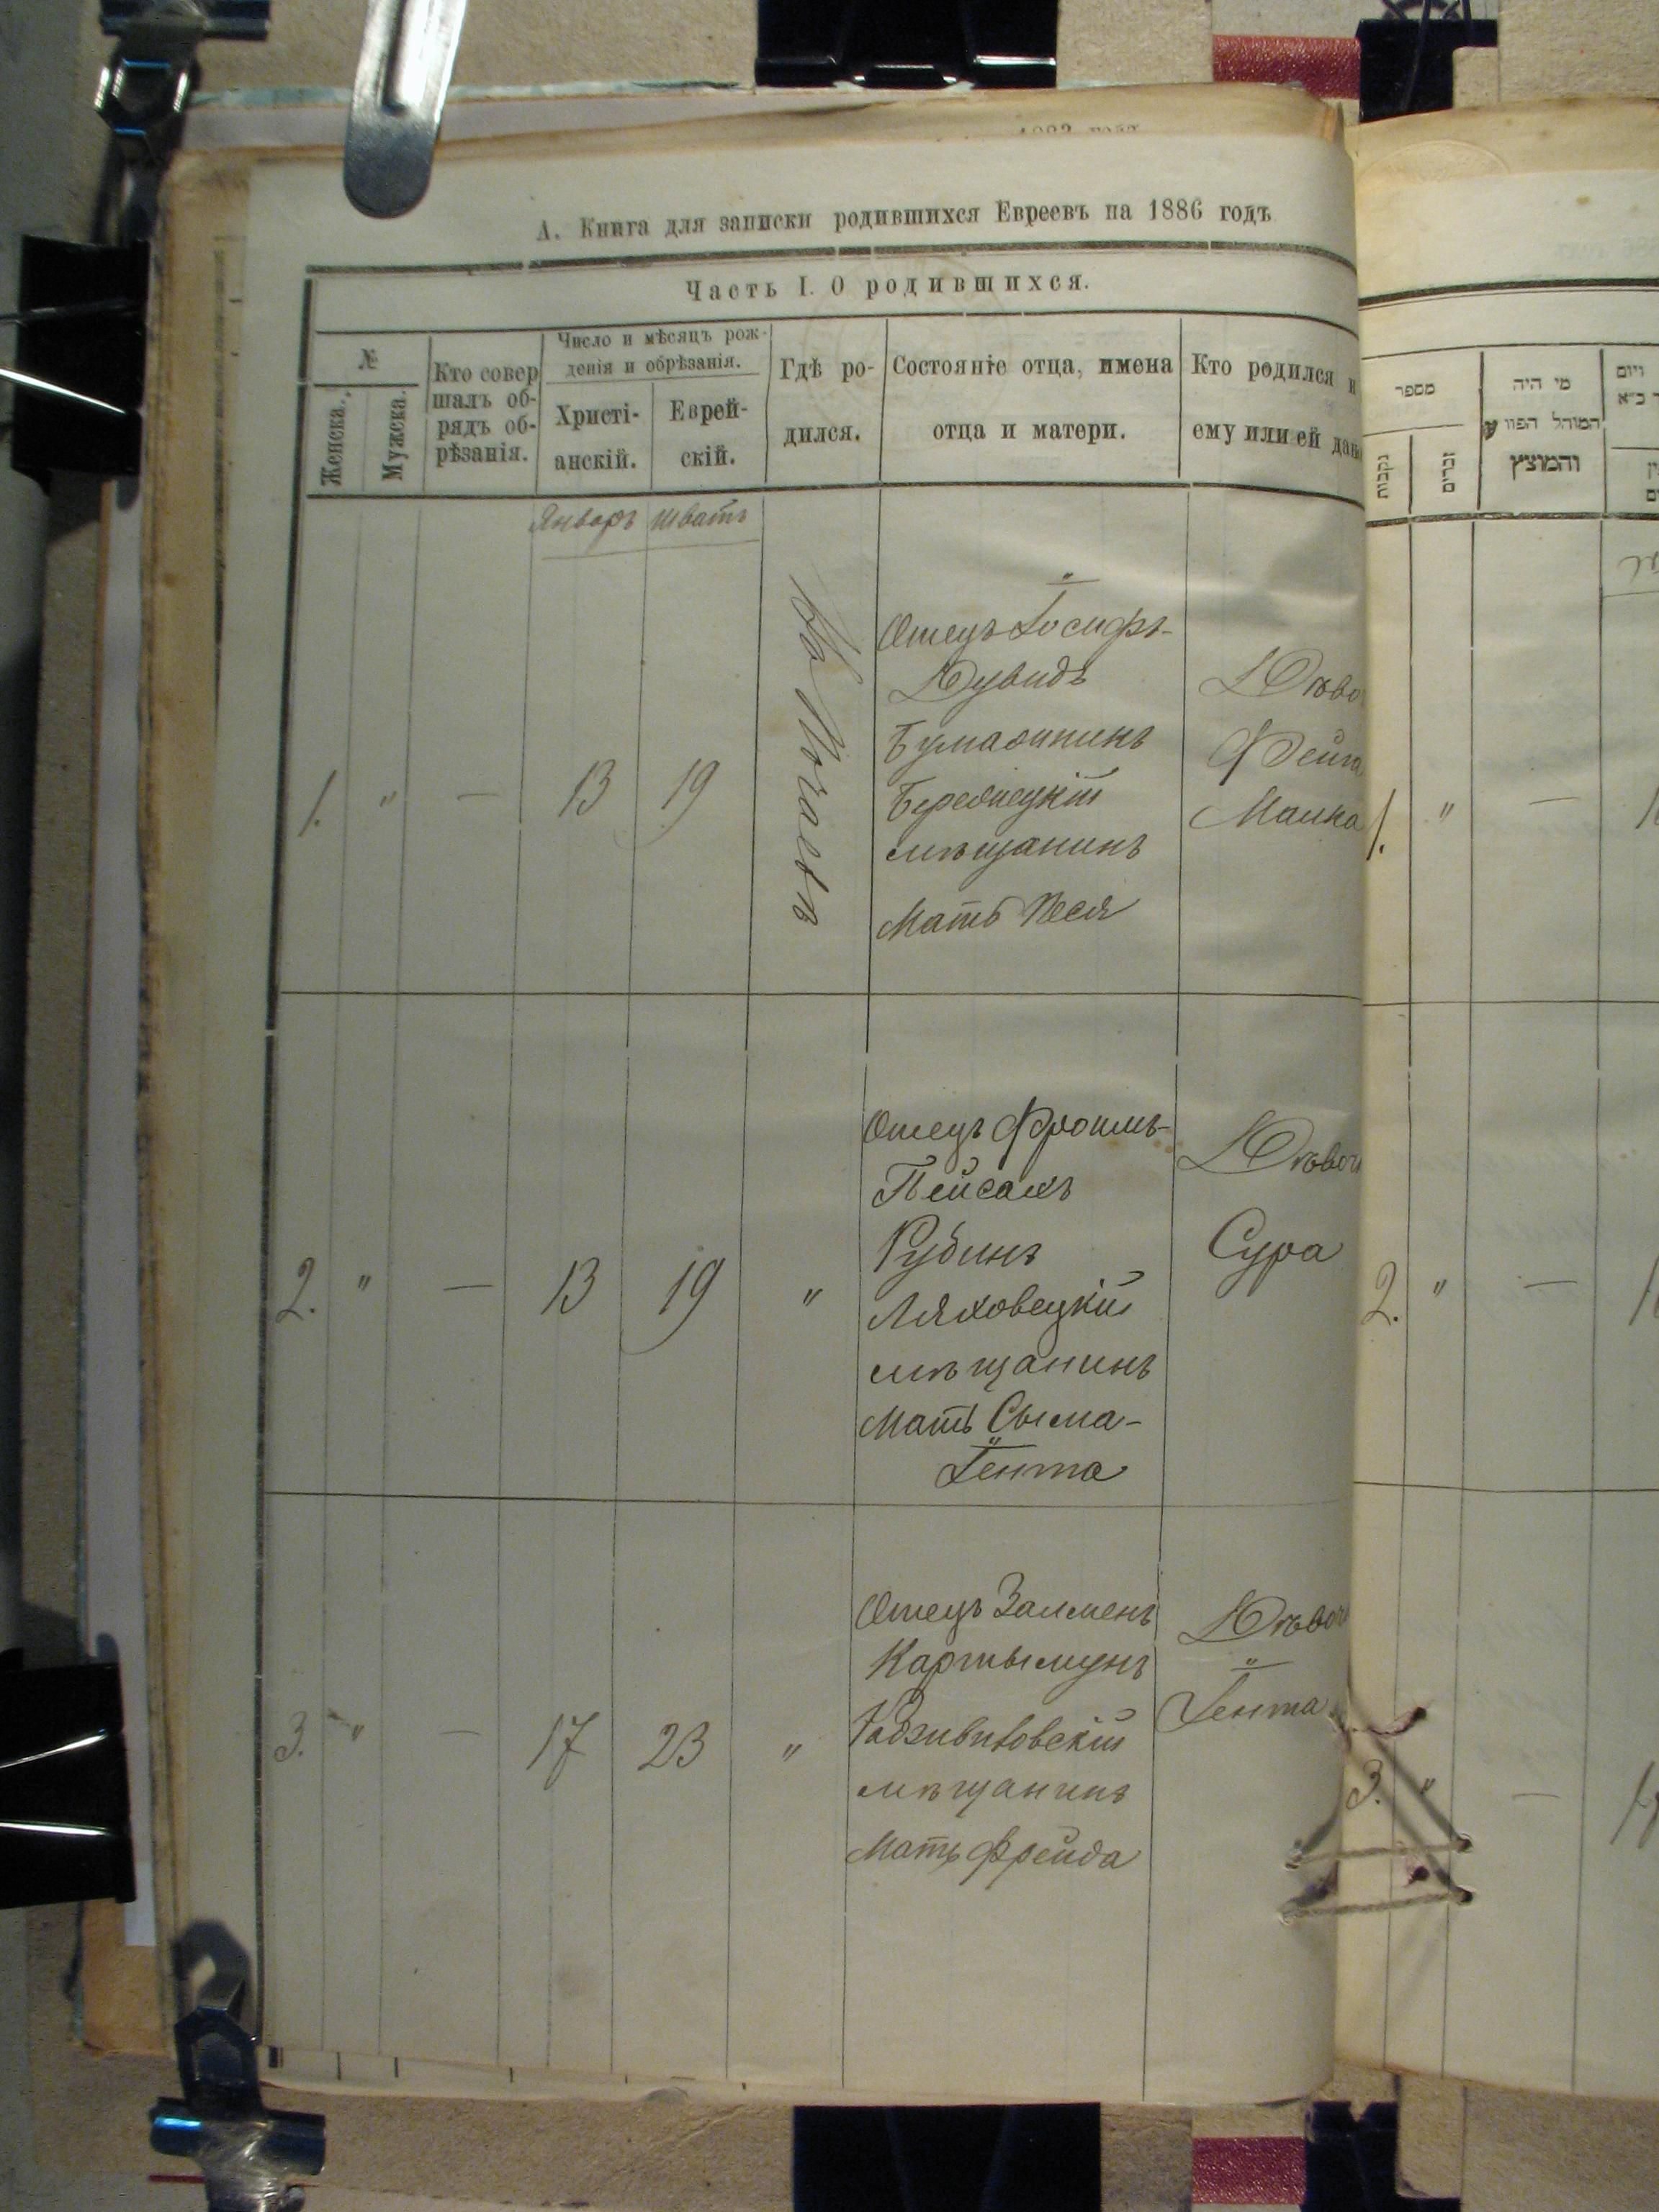 А. Книга для записки родившихся Евреевъ на 1886 годъ
Часть I. О родившихся.
№
Женска.
Мужска.
Кто совер
шалъ об-
рядъ об-
рѣзанія.
Число и мѣсяцъ рож-
денія и обрѣзанія.
Христі-
анскій.
Еврей-
скій.
Гдѣ ро-
дился.
Состояніе отца, имена
отца и матери.
Кто родился и
ему или ей дано
Январь Шватъ
1. " — 13 19
Отецъ Іосифъ-
Дувидъ
мѣщанинъ
Мать Песя
Дѣво
Фейга
Малка
2. " — 13 19 "
Отецъ Фроимъ-
Пейсахъ
Рубинъ
Ляховецкій
мѣщанинъ
Мать Сыма-
Іента
Дѣвоч
Сура
3. " — 17 23 "
Отецъ Залменъ
Радзивиловскій
мѣщанинъ
Мать Фрейда
Дѣвоч
Іента
מספר
נקבות
זכרים
מי היה
המוהל הפורע
והמוצץ
ויום
1. " —
2. " —
3. " —